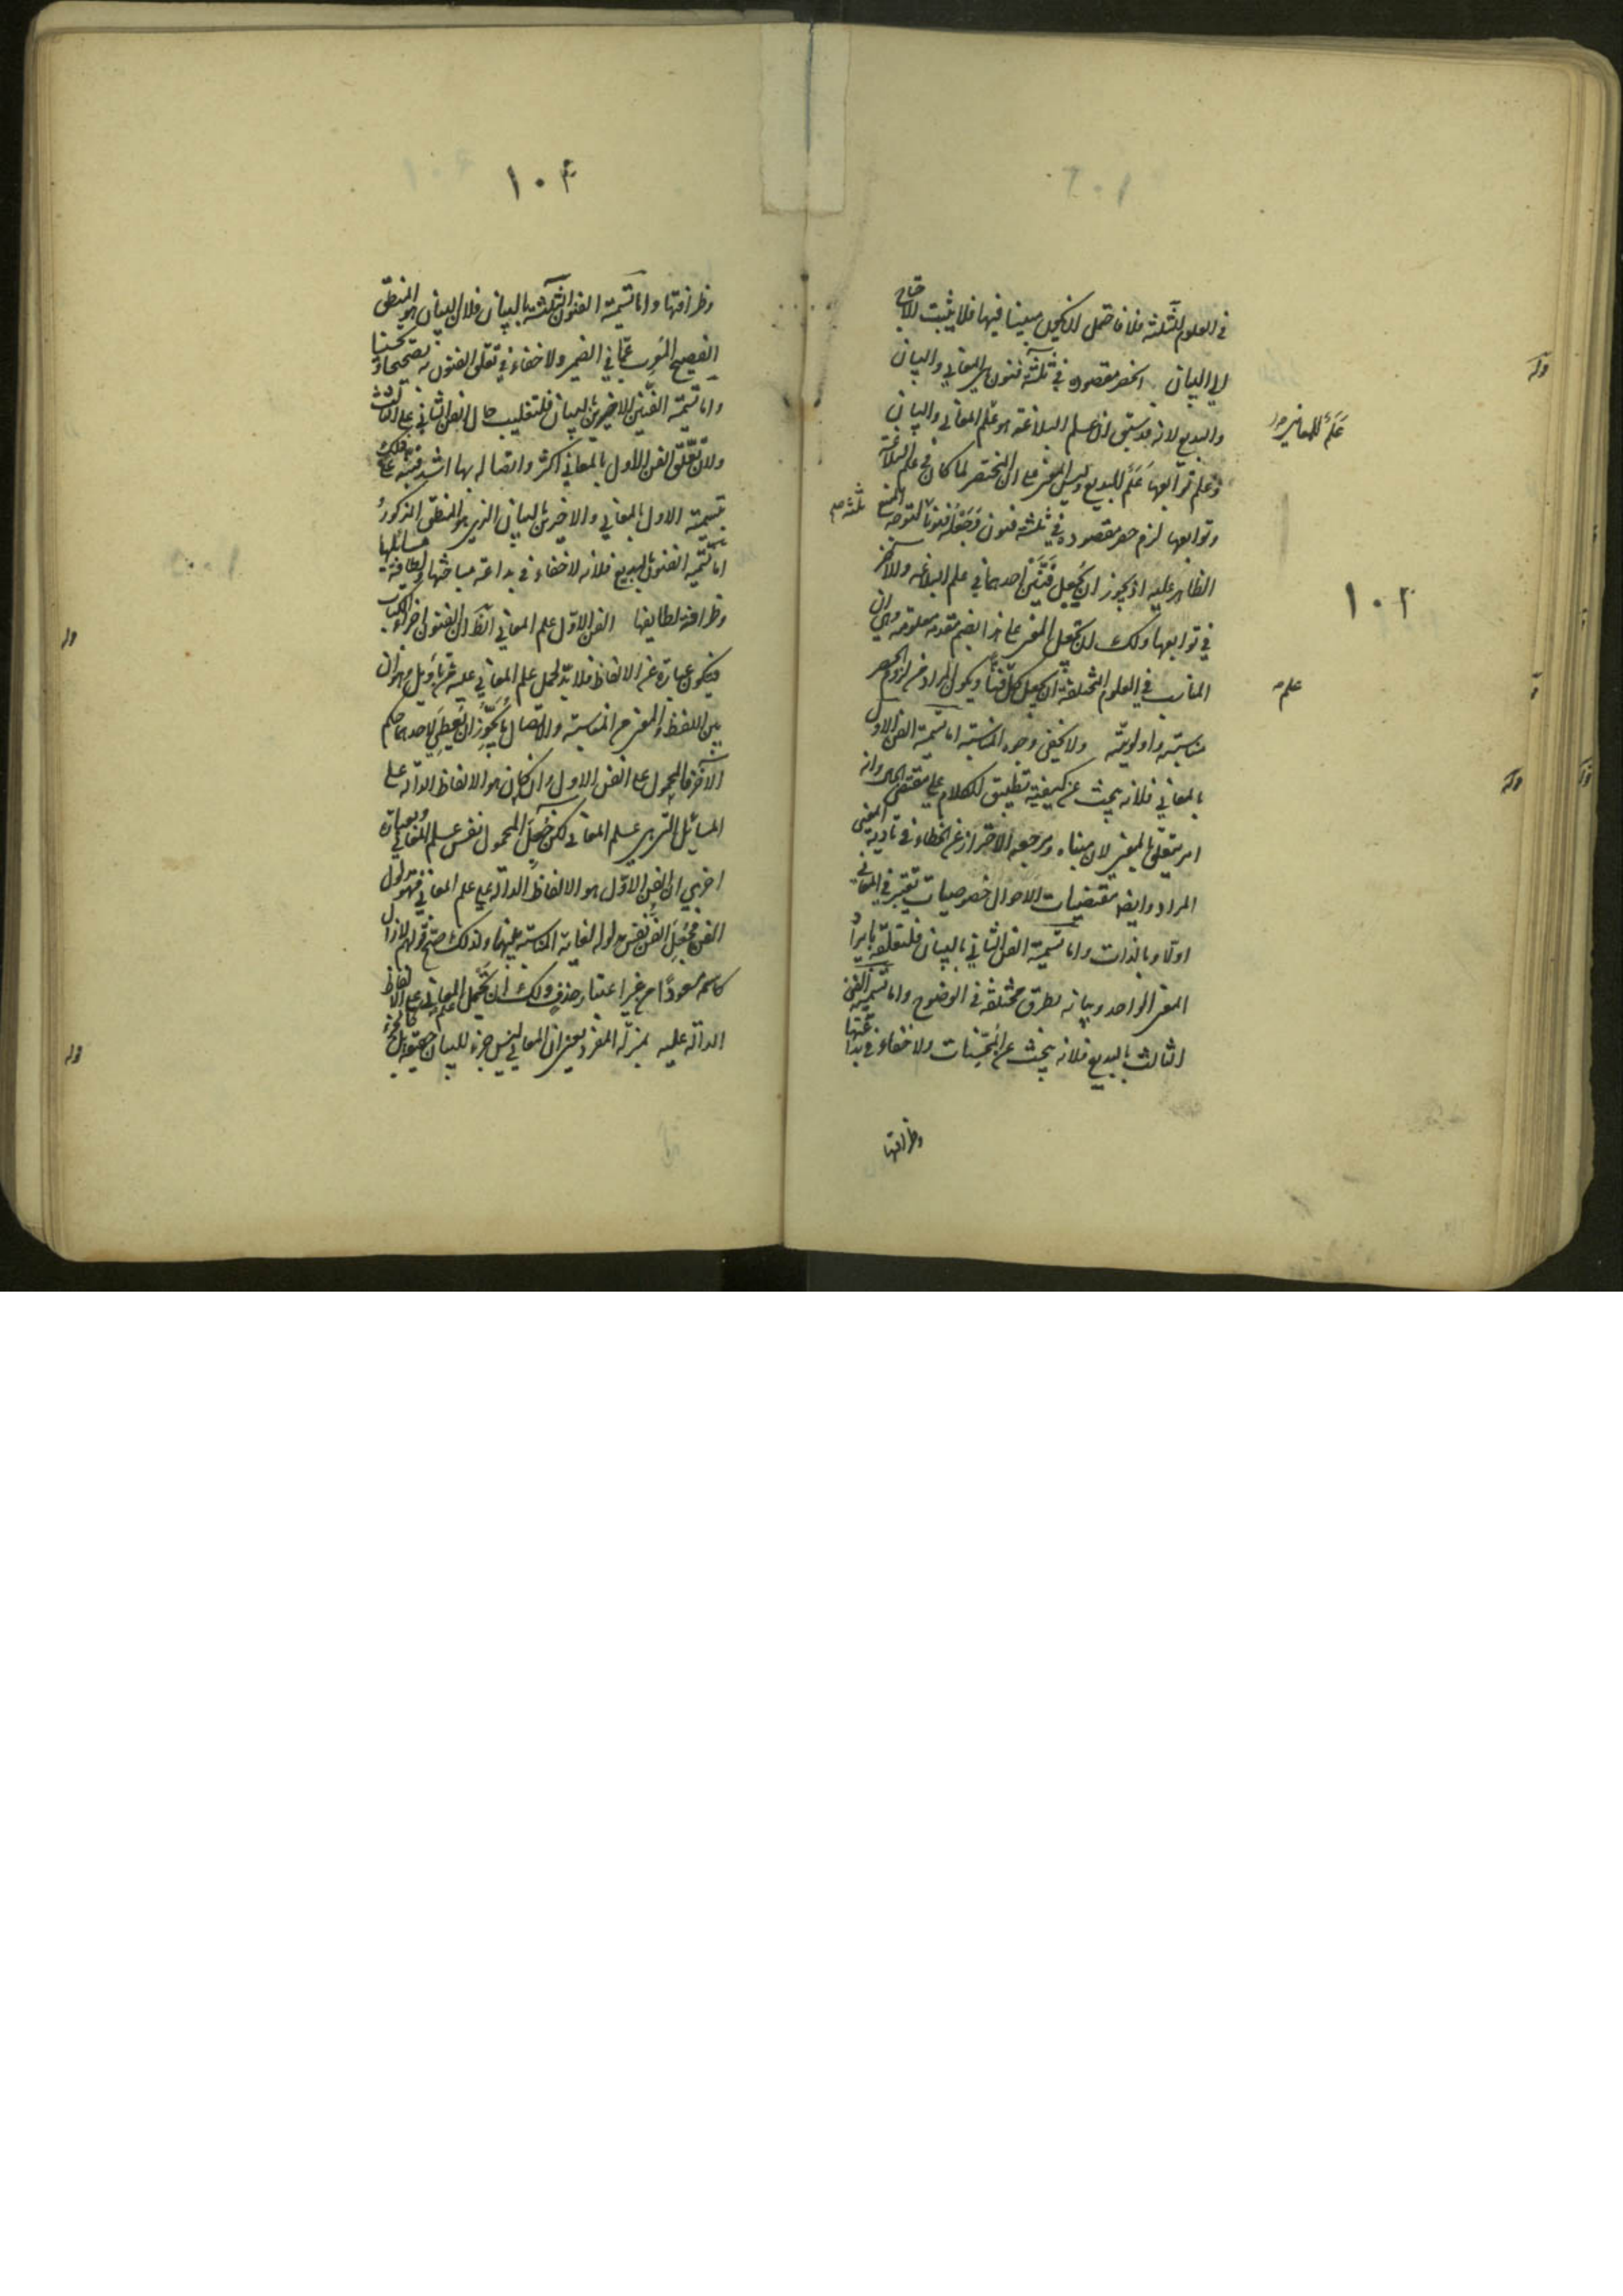 ١٠٣
في العلوم الثلثة فلان احتمل ان يكون مبينا فيها فلا يثبت الاحتياج
الى البيان انحصر مقصوده في ثلثة فنون هي المعاني والبيان
والبديع لانه قد سبق ان علم البلاغة هو علم المعاني والبيان
وعلم توابعها علم للبديع وليس المختصر لما كان في علم البلاغة
وتوابعها لزم حصر مقصوده في ثلثة فنون وجعله فنونا لتوجه المنع
الظاهر عليه اذ يجوز ان يجعل فنين احدهما في علم البلاغة والآخر
في توابعها ولك ان تجعل المعنى على هذا بضم مقدمة معلومة وهي ان
المناسب في العلوم المختلفة ان يجعل كل فنا ويكون المراد من لزوم الحصر
مناسبته واولويته ولا يخفى وجوه المناسبة اما تسمية الفن الاول
بالمعاني فلانه يبحث عن كيفية تطبيق الكلام على مقتضى الحال وانه
امر يتعلق بالمعنى لان مبناه ومرجعه الاحتراز عن الخطاء في تادية المعنى
المراد وايضا مقتضيات الاحوال خصوصيات تعتبر في المعاني
اولا وبالذات واما تسمية الفن الثاني بالبيان فلتعلقه بايراد
المعنى الواحد وبيانه بطرق مختلفة في الوضوح واما تسمية الفن
الثالث بالبديع فلانه يبحث عن المحسنات ولا خفاء في بداعتها
وظرافتها
علم للمعاني
ثلثة
علم
قوله
قوله
١٠٤
وظرافتها واما تسمية الفنون الثلثة بالبيان فلان البيان هو المنطق
الفصيح المعرب عما في الضمير ولا خفاء في تعلق الفنون به تصحيحا وتحسينا
واما تسمية الفنين الاخيرين بالبيان فلتغليب حال الفن الثاني على الثالث
ولان تعلق الفن الاول بالمعاني اكثر واتصاله بها اشد فنبه على ذلك
بتسمية الاول بالمعاني والاخيرين بالبيان الذي هو المنطق المذكور
اما تسمية الفنون بالبديع فلانه لا خفاء في بداعة مباحثها ولطافة مسائلها
وظرافة لطايفها الفن الاول علم المعاني الظ ان الفنون اجزاء الكتاب
فيكون عبارة عن الالفاظ فلا بد لحمل علم المعاني عليه من تاويل وهو ان
بين اللفظ والمعنى من المناسبة والاتصال ما يجوز ان يعطى لاحدهما حكم
الآخر فالمحمول على الفن الاول وان كان هو الالفاظ الدالة على
المسائل التي هي علم المعاني لكن جعل المحمول نفس علم المعاني وبعبارة
اخرى ان الفن الاول هو الالفاظ الدالة على علم المعاني فهو مدلول
الفن فجعل الفن نفس مدلوله لغاية المناسبة بينهما ولذلك صح قولهم
كاسمه مسعودا من غير اعتبار حذف ولك ان تحمل علم المعاني على الالفاظ
الدالة عليه بمنزلة المفرد يعني ان المعاني ليس جزء للبيان حقيقة بل كالجزء
قوله
قوله